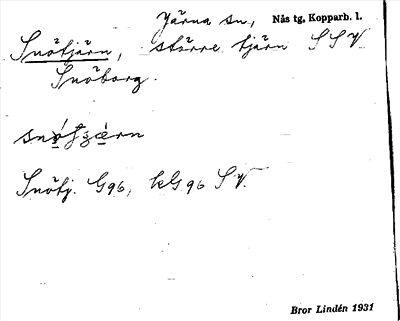 Järna sn, Nås tg, Kopparb. l.
Snötjärn, större tjärn SSV
Snöborg.
Snötj. G96, kG96 SV.
Bror Lindén 1931